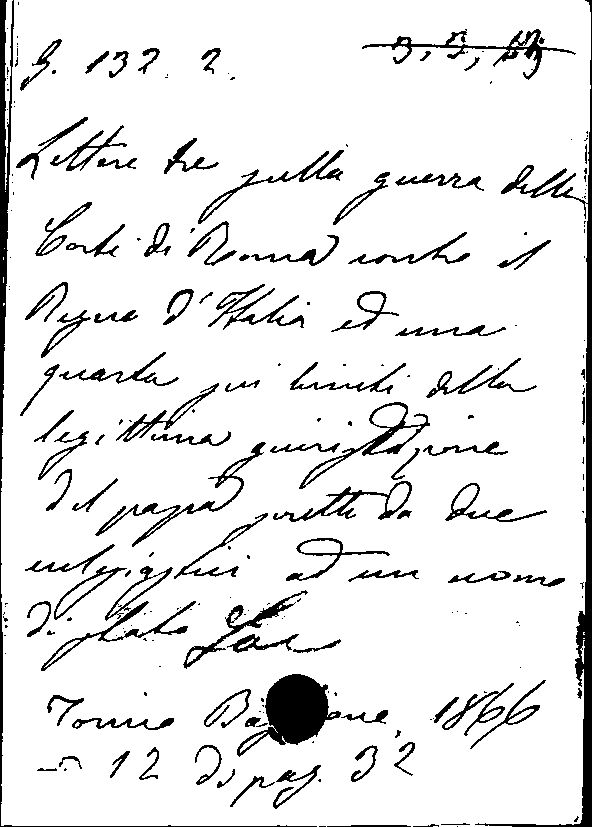 G. 132. 2. 3, 3,
Lettere tre sulla guerra della
Corte di Roma contro il
Regno d'Italia ed una
quarta sui limiti della
legittima giurisdizione
del papa scritte da due
eclesiastici ad un uomo
di stato
Torino 1866
in 12 di pag. 32